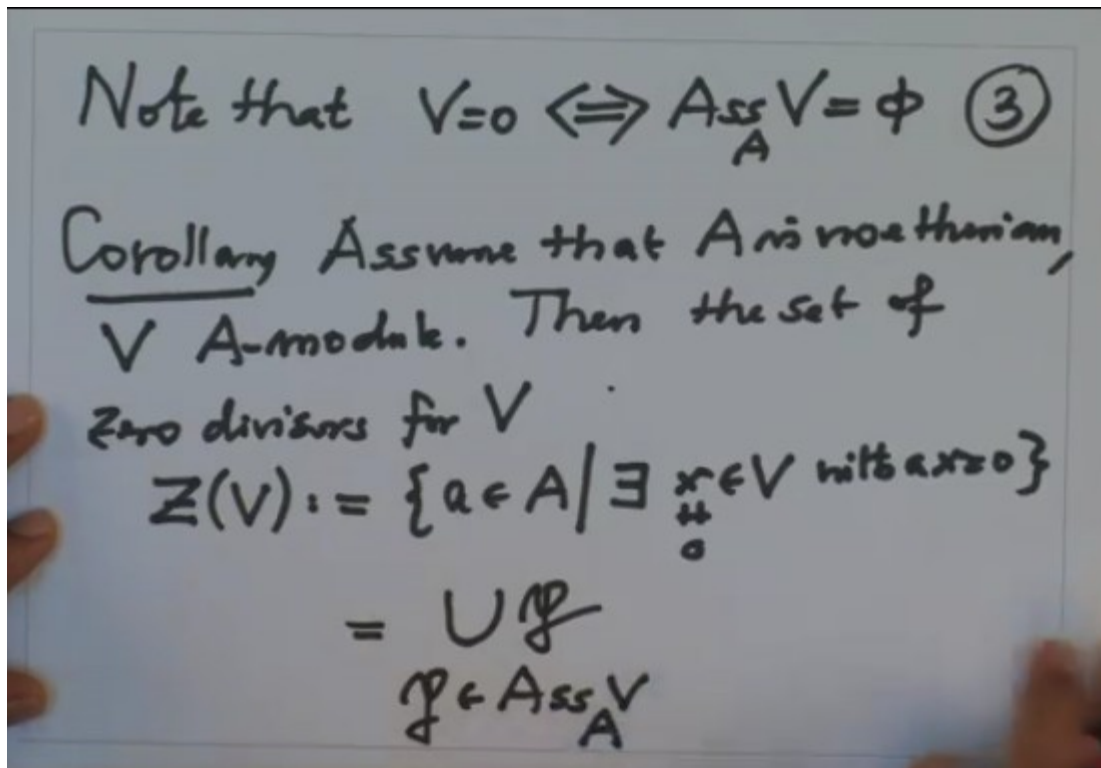 Note that V=0 ⟺ Ass_A V = ϕ ③
Corollary Assume that A is noetherian,
V A-module. Then the set of
zero divisors for V
Z(V) := {a ∈ A | ∃ x ∈ V with ax=0}
≠
0
= ∪ 𝔭
𝔭 ∈ Ass_A V